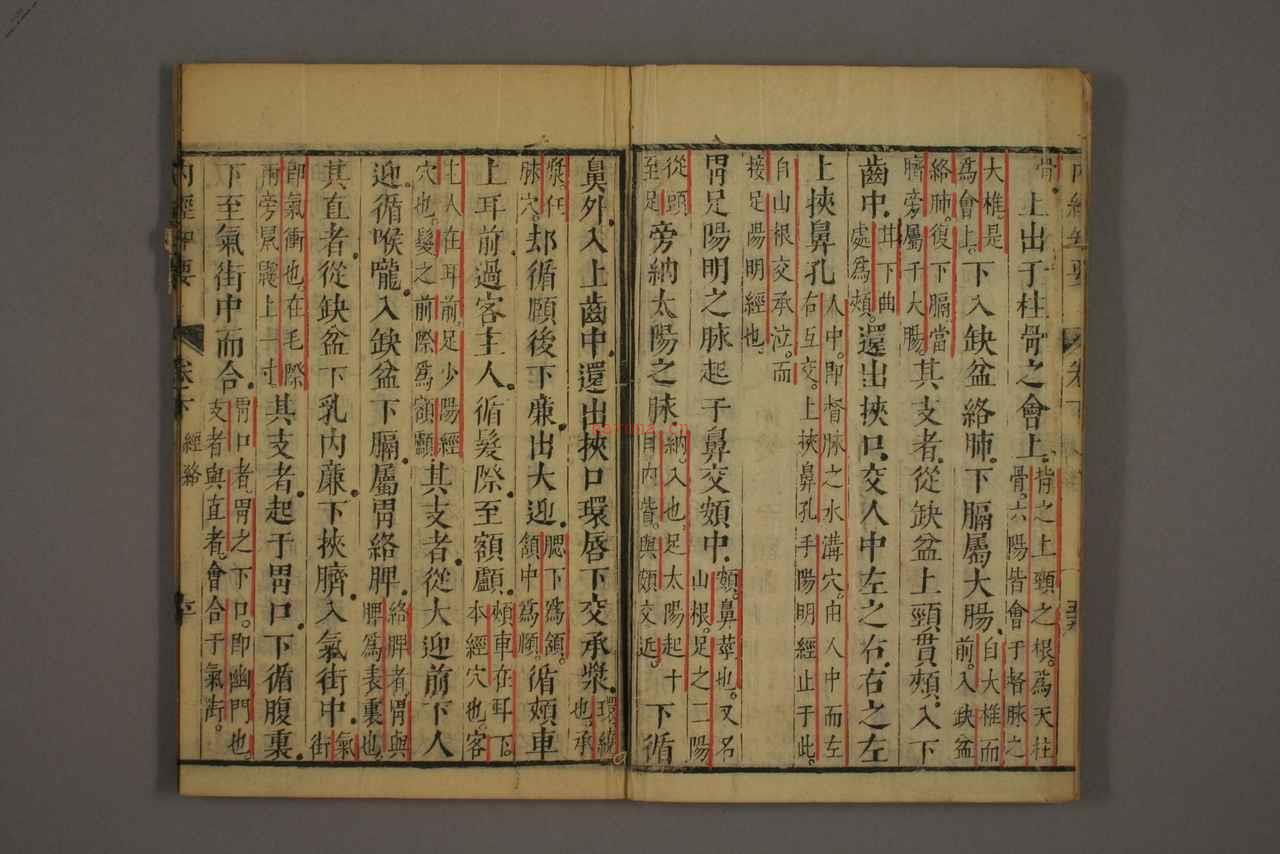 骨。上出于柱骨之會上。背之上頸之根。爲天柱骨。六陽皆會于督脉之
大椎。是爲會上。下入缺盆絡肺。下膈屬大腸。自大椎而前。入缺盆
絡肺。復下膈當臍旁屬于大腸。其支者。從缺盆上頸貫頰。入下
齒中。耳下曲處爲頰。還出挾口。交人中左之右。右之左
上挾鼻孔人中。即督脉之水溝穴。由人中而左右互交。上挾鼻孔手陽明經止于此。
自山根交承泣。而接足陽明經也。
胃足陽明之脉起于鼻交頞中。頞。鼻莖也。又名山根。足之二陽
從頭至足旁納太陽之脉。納。入也。足太陽起于目內眥。與頞交近。下循
鼻外。入上齒中。還出挾口環唇下交承漿。環繞也。承
漿。任脉穴。却循頤後下廉。出大迎。腮下爲頷。頷中爲頤。循頰車
上耳前。過客主人。循髮際。至額顱。頰車在耳下。本經穴也。客
主人在耳前。足少陽經穴也。髮之前際爲額顱其支者。從大迎前下人
迎。循喉嚨。入缺盆下膈屬胃絡脾。絡脾者。胃與脾爲表裏也。
其直者。從缺盆下乳內廉。下挾臍。入氣街中。氣街
即氣衝也。在毛際兩旁鼠鼷上一寸。其支者。起于胃口。下循腹裏。
下至氣街中而合。胃口者。胃之下口。即幽門也。支者與直者。會合于氣街。
內經知要
卷下
經絡
karona.cn